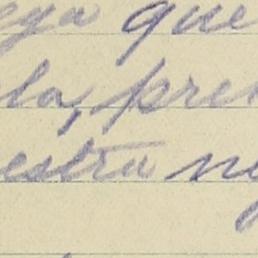 ega que
la, pre
estra n